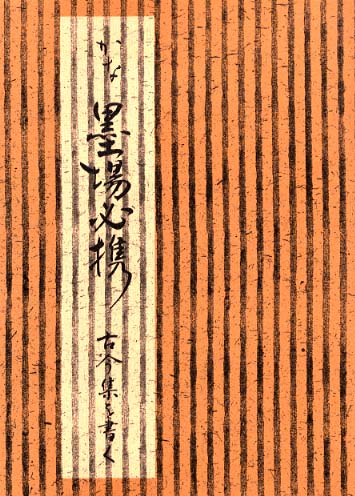 かな墨場必携
古今集を書く